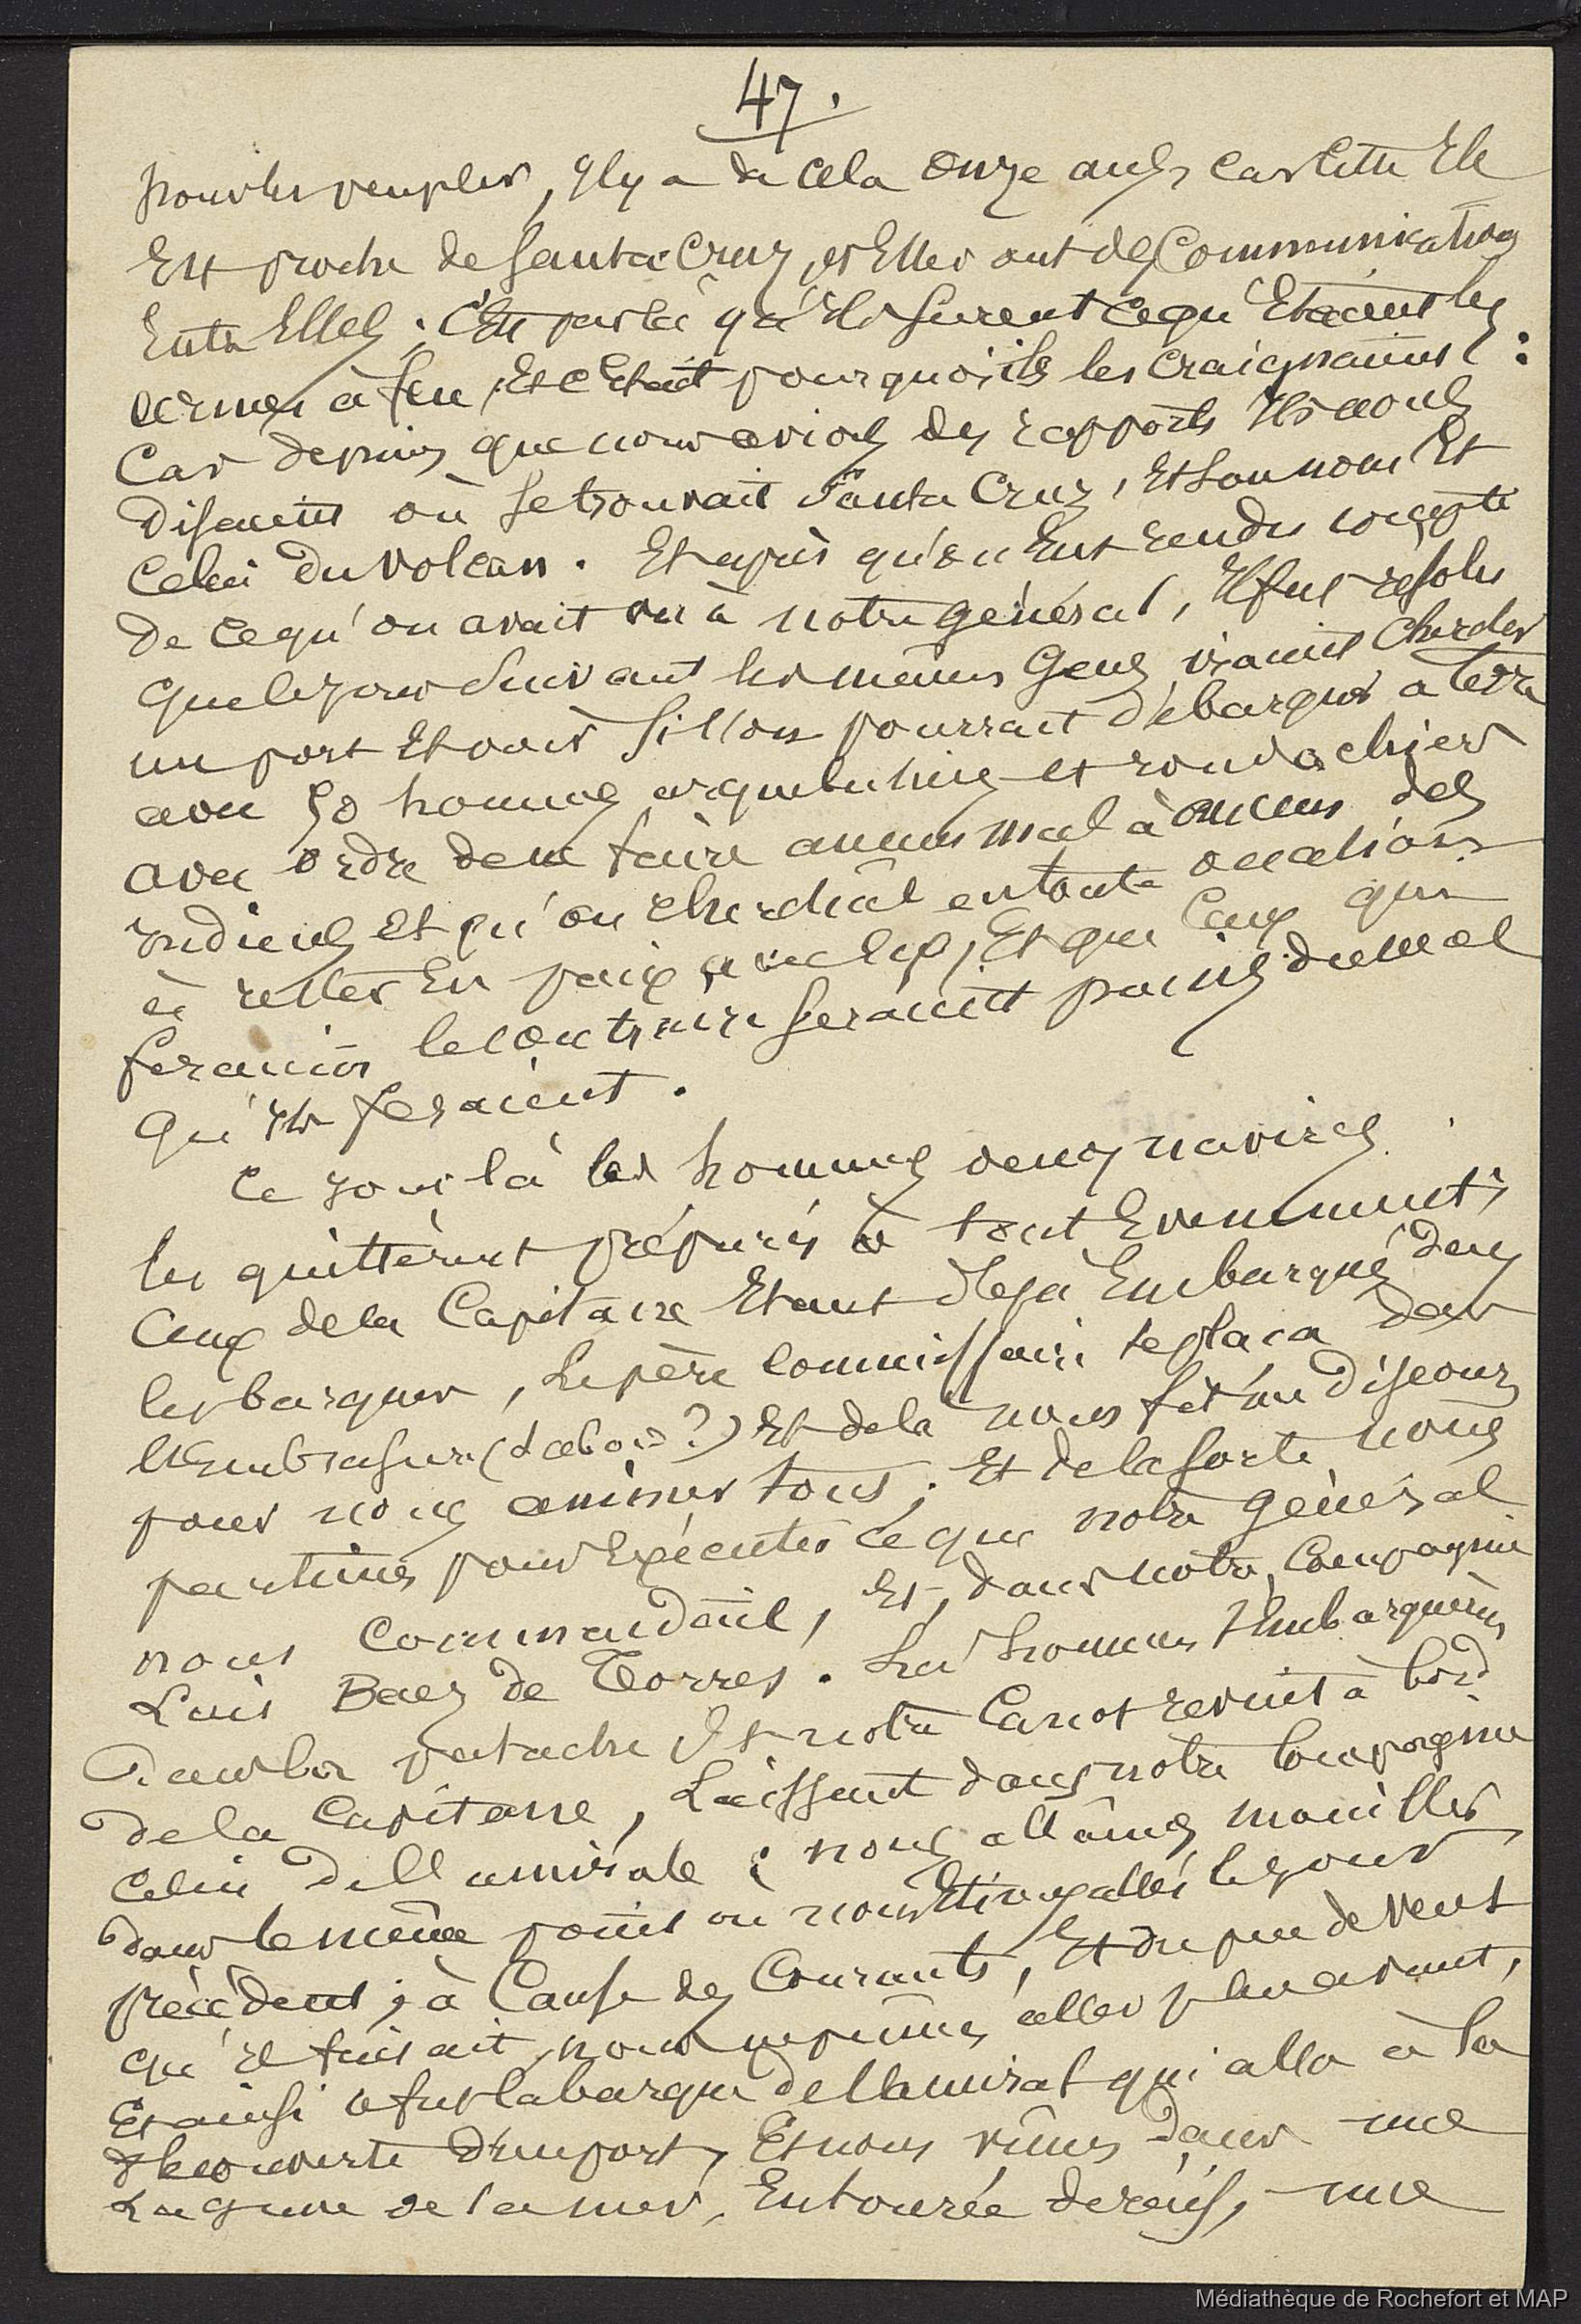 47.
pour les peupler, Il y a de cela Onze ans, car cette Ile
Est proche de Santa Cruz, et Elles ont des Communications
Entre Elles ; C'Est par là qu'Ils surent ce qu'Etaient les
armes à feu, Et c'Etait pourquoi ils les craignaient :
Car depuis que nous avions des rapports Ils nous
disaient où se trouvait Santa Cruz, Et son nom Et
Celui du Volcan. Et après qu'on Eut rendu compte
de ce qu'on avait vu à notre général, Il fut résolu
que le jour suivant les mêmes Gens iraient Chercher
un port Et voir si l'on pourrait débarquer à terre
avec 50 hommes arquebusiers et rondachiers
avec ordre de ne faire aucun mal à aucun des
Indiens Et qu'on cherchât en toute occasion
à rester En paix avec Eux, Et que Ceux qui
feraient le contraire seraient punis du mal
qu'Ils feraient.
Ce jour là les hommes des navires
les quittèrent préparés à tout Evenement ;
Ceux de la Capitane Etant déjà Embarqués dans
les barques, le père commissaire se plaça dans
l'Embrasure (Labord ?) Et de là nous fit un discours
pour nous animer tous ; Et de la sorte nous
partîmes pour Exécuter ce que notre général
nous commandait, Et, dans notre Compagnie
Luis Baez de Torres. Les hommes s'Embarquèrent
dans la patache Et notre Canot revint à bord
de la Capitane, Laissant dans notre Compagnie
Celui de l'amirale ; nous allâmes mouiller
dans le même point où nous Etions allés le jour
précédent ; à Cause des Courants, Et du peu de Vent
qu'il faisait, nous ne pûmes aller plus avant,
Et ainsi ce fut la barque de l'Amiral qui alla à la
découverte d'un port, Et nous vîmes dans une
Lagune de la mer, Entourée de récifs, une
Médiathèque de Rochefort et MAP